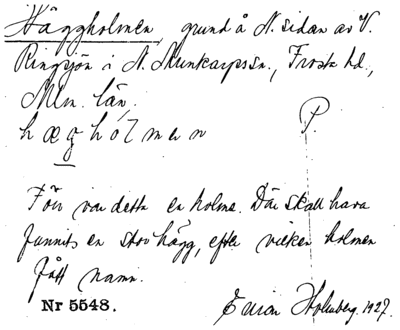 Häggholmen, grund å N. sidan av V.
Ringsjön i N. Munkarpssn., Frosta hd.,
Mlm. län.
hæghólmen
P.
Förr var detta en holme. Där skall hava
funnits en stor hägg, efter vilken holmen
fått namn.
Nr 5548.
Holmberg. 1927.